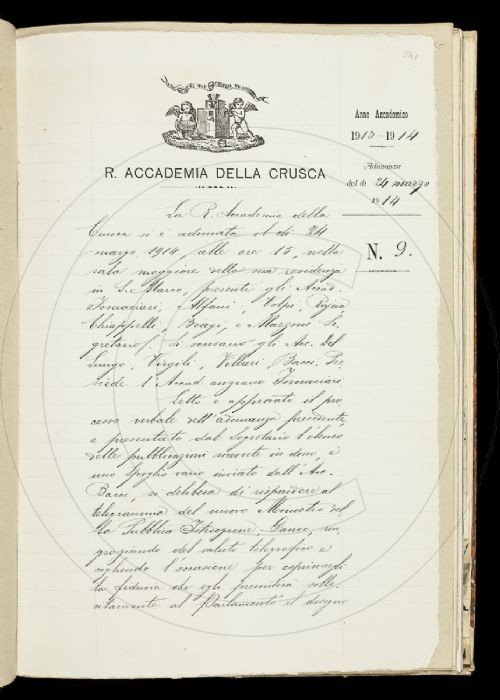 Anno Accademico
1913-1914
Adunanza
del dì 24 marzo
1914
N. 9.
R. ACCADEMIA DELLA CRUSCA
La R. Accademia della
Crusca si è adunata il dì 24
marzo 1914, alle ore 15, nella
sala maggiore della sua residenza
in S. Marco, presenti gli Accad.
Tornaciari, Alfani, Volpi, Rajna
Chiappelli, Biagi, e Mazzoni Se-
gretario. Si scusano gli Acc. Del
Lungo, Virgili, Villari, Bacci. Pre-
siede l'Accad. anziano Fornaciari.
Letto e approvato il pro-
cesso verbale dell'adunanza precedente,
e presentato dal Segretario l'elenco
delle pubblicazioni ricevute in dono, e
uno spoglio vario inviato dall'Acc.
Bacci, si delibera di rispondere al
telegramma del nuovo Ministro del-
la Pubblica Istruzione, Daneo, rin-
graziando del saluto telegrafico e
cogliendo l'occasione per esprimergli
la fiducia che egli presenterà solle-
citamente al Parlamento il disegno